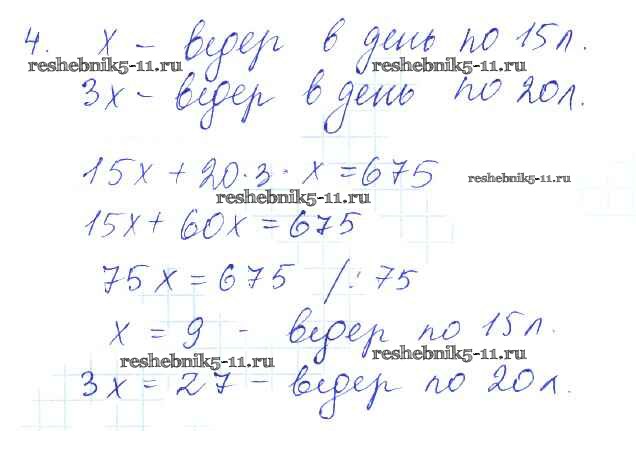 4. х – ведер в день по 15 л.
reshebnik5-11.ru reshebnik5-11.ru
3х – ведер в день по 20 л.
15х + 20·3·х = 675 reshebnik5-11.ru
reshebnik5-11.ru
15х + 60х = 675
75х = 675 /: 75
х = 9 – ведер по 15 л.
reshebnik5-11.ru reshebnik5-11.ru
3х = 27 – ведер по 20 л.